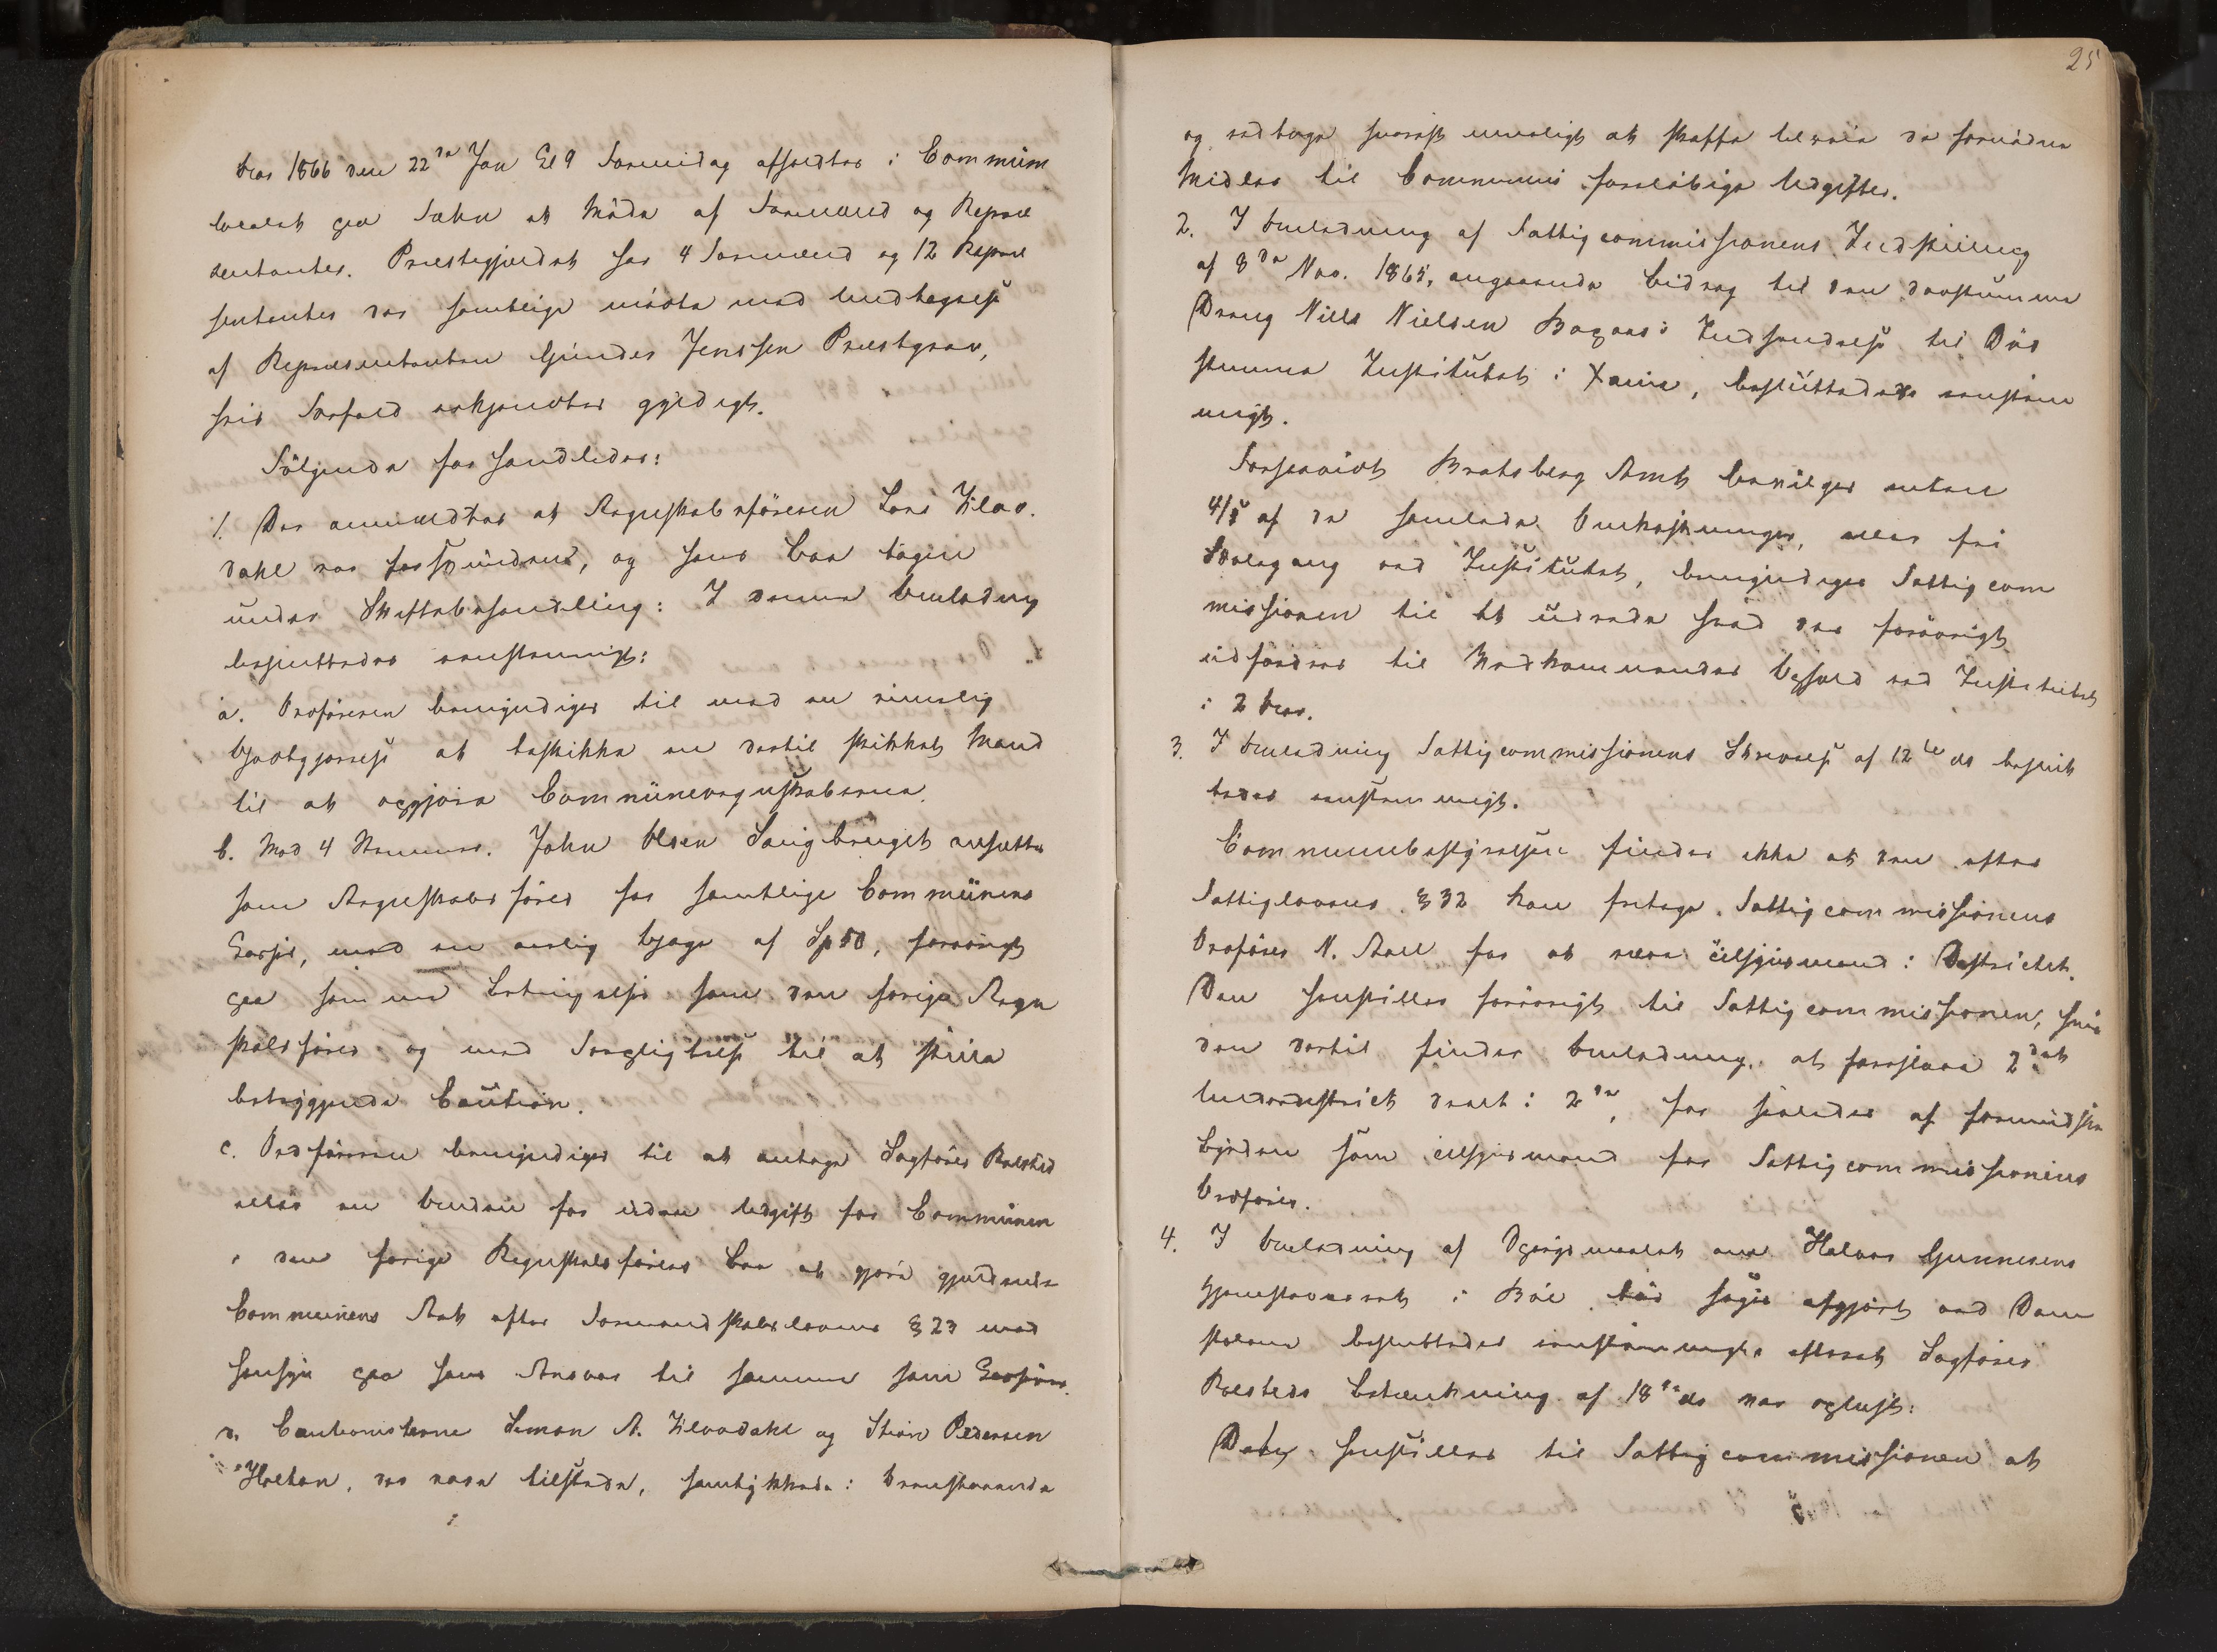 Aar 1866 den 22de Jan Kl 9 Formiddag afholdtes i Commun
localet paa Sahn et Møde af Formænd og Repræ
sentanter. Præstegjeldet har 4 Formænd og 12 Repræ
sentanter der samtlige mødte med Undtagelse
af Repræsentanten Gunder Jenssen Præstgrav,
hvis Forfald erkjendtes gyldigt.
Følgende forhandledes:
1. Der anmeldtes at Regnskabsføreren Lars Flov
dahl var forsvunden, og hans Boe tagen
under Skiftebehandling: I denne Anledning
besluttedes eenstemmigt:
a. Ordføreren bemyndiges til mod en rimelig
Godtgjørelse at beskikke en dertil skikket Mand
til at opgjøre Communeregnskaberne.
b. Mod 4 Stemmer. John Olsen Haugbrugets ansættes
som Regnskabsfører for samtlige Communens
Casser, mod en aarlig Gage af Sp 50, forøvrigt
paa samme Betingelse som den forrige Regn
skabsfører og med Forpligtelse til at stille
betryggende Caution.
c. Ordføreren bemyndiges til at antage Sagfører Rolsted
eller en Anden for uden Udgift for Communen
i den forrige Regnskabsførers Boe at gjøre gjeldende
Communens Ret efter Formandskabslovens § 23 med
Hensyn paa hans Ansvar til samme som Casserer.
d. Cautionisterne Simon A. Flovdahl og Stian Pedersen
Holtan, der vare tilstede, samtykkede i Ovenstaaende
25
og vedtoge snarest mueligt at skaffe tilveie de fornødne
Midler til Communens foreløbige Udgifter.
2. I Anledning af Fattigcommissionens Indstilling
af 8de Nov. 1865, angaaende Bidrag til den døvstumme
Dreng Niels Nielsen Bøgaas's Indsendelse til Døv
stumme Institutet i Xania, besluttedes eenstem
migt.
Forsaavidt Bratsberg Amt bevilger enten
4/5 af de samlede Omkostninger, eller fri
Skolegang ved Institutet, bemyndiges Fattigcom
missionen til at udrede hvad der forøvrigt
udfordres til Vedkommendes Ophold ved Institutet
i 2 Aar.
3. I Anledning Fattigcommissionens Skrivelse af 12te ds beslut
tedes eenstemmigt.
Communebestyrelsen finder ikke at den efter
Fattiglovens § 32 kan fritage Fattigcommissionens
Ordfører N. Aall for at være Tilsynsmand i Destrictet.
Den henstilles forøvrigt til Fattigcommissionen, hvis
den dertil finder Anledning, at foreslaae 2det
Underdistrict deelt i 2de, for saaledes at formindske
Byrden som Tilsynsmand for Fattigcommissionens
Ordfører.
4. I Anledning af Spørgsmaalet om Halvor Gunnesens
Hjemstavnsret i Bøe bør søges afgjort ved Dom
stolene besluttedes eenstemmigt efterat Sagfører
Rolsteds Betænkning af 18de ds var oplæst:
Det henstilles til Fattigcommissionen at